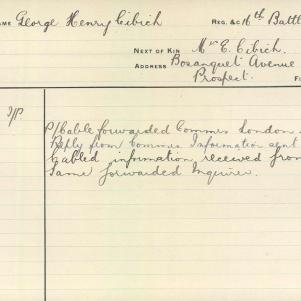 AME George Henry Cibich REG. &C 16th Battl
NEXT OF KIN Mr E. Cibich.
ADDRESS Bosanquet Avenue
Prospect.
P/Cable forwarded Commis London
Reply from Commis Information sent
Cabled information received from
Same forwarded Inquirer.